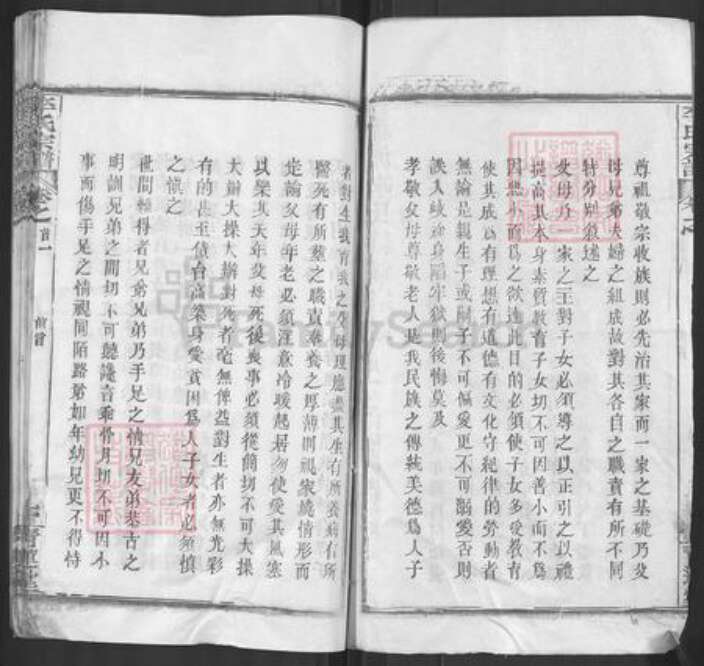 尊祖敬宗收族則必先治其家而一家之基礎乃父
母兄弟夫婦之組成故對其各自之職責有所不同
特分別叙述之
父母乃一家之主對子女必須導之以正引之以禮
提高其本身素質教育子女切不可因善小而不為
因惡小而為之欲達此目的必須使子女多受教育
使其成為有理想有道德有文化守紀律的勞動者
無論是親生子或嗣子不可偏愛更不可溺愛否則
誤入歧途身陷牢獄則後悔莫及
孝敬父母尊敬老人是我民族之傳統美德為人子
者對生我育我之父母理應盡其生有所養病有所
醫死有所葬之職責奉養之厚薄則視家境情形而
定論父母年老必須注意冷暖起居勿使受其風寒
以樂其天年父母死後喪事必須從簡切不可大操
大辦大操大辦對死者毫無俾益對生者亦無光彩
有的甚至債台高築身受貧困為人子女者必須慎
之慎之
世間難得者兄弟兄弟乃手足之情兄友弟恭古之
明訓兄弟之間切不可聽讒言乖骨肉切不可因小
事而傷手足之情視同陌路弟如年幼兄更不得恃
李氏宗譜
卷之首一
FamilySearch